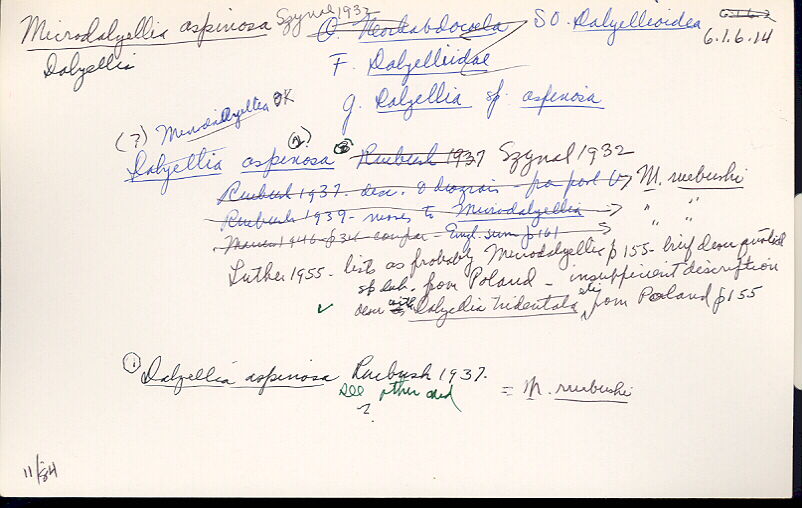 Microdalyellia aspinosa Szynal 1932 O. Neorhabdocoela SO. Dalyellioidea
6.1.6.14
Dalyellia F. Dalyelliidae
g. Dalyellia sp. aspinosa
(?) Microdalyellia OK
(2)
Dalyellia aspinosa Ruebush 1937 Szynal 1932
Ruebush 1937 - desc. & diagrais - pa part V → M. ruebushi
Ruebush 1939 - moves to Microdalyellia → " "
1946 p34 compar - Engl sum p161 → " "
Luther 1955 - lists as probably Microdalyellia p155 - brief descr
sp from Poland - insufficient description
✓ descr with Dalyellia tridentata from Poland p155
(1) Dalyellia aspinosa Ruebush 1937. = M. ruebushi
see other card
?
11/84